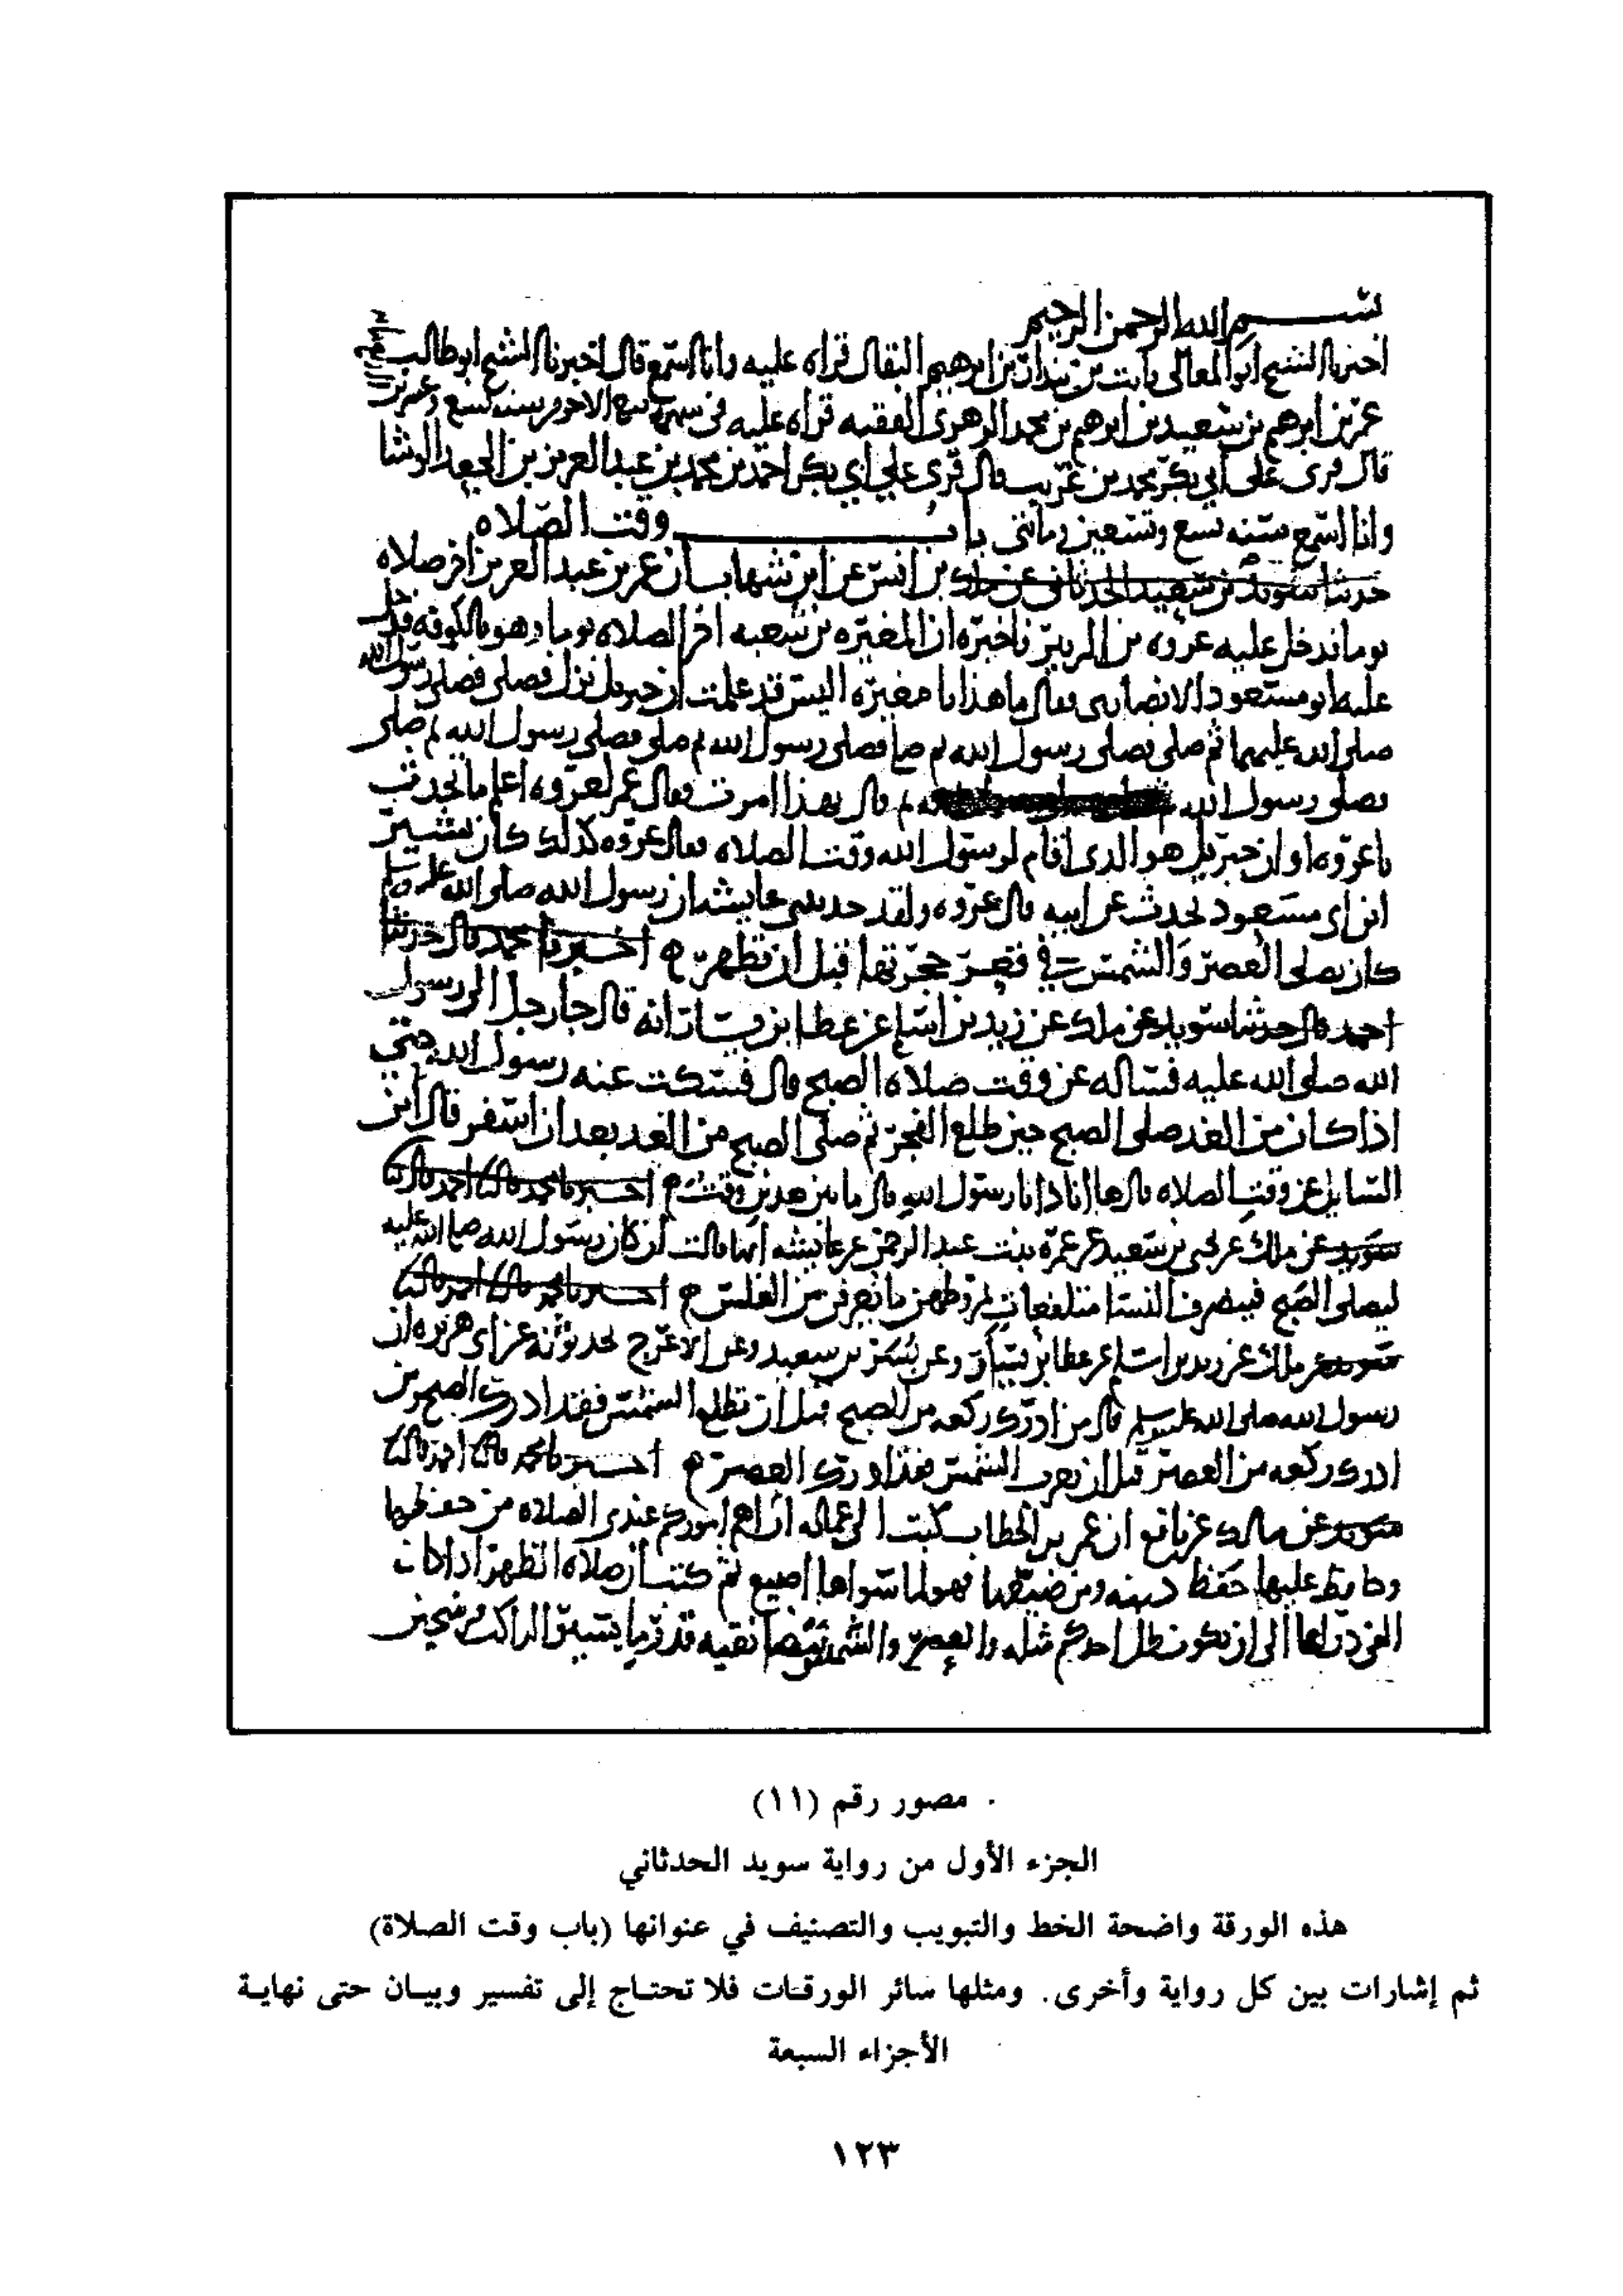 بسم الله الرحمن الرحيم
اخبرنا الشيخ ابو المعالي ثابت بن بندار بن ابرهيم البقال قراه عليه وانا اسمع قال اخبرنا الشيخ ابو طالب
عمر بن ابرهيم بن سعيد بن ابرهيم بن محمد الزهري الفقيه قراه عليه في شهر ربيع الاخر من سنه تسع وعشرين
قال قرى على ابي بكر محمد بن غريب قال قرى على ابي بكر احمد بن محمد بن عبد العزيز بن الجعد الوشا
وانا اسمع سنه تسع وتسعين ومائتي باب وقت الصلاه
حدثنا سويد بن سعيد الحدثاني عن ملك بن انس عن ابن شهاب ان عمر بن عبد العزيز اخر صلاه
يوما فدخل عليه عروه بن الزبير فاخبره ان المغيره بن شعبه اخر الصلاه يوما وهو بالكوفه فدخل
عليه ابو مسعود الانصاري فقال ما هذا يا مغيره اليس قد علمت ان جبريل نزل فصلى فصلى رسول الله
صلى الله عليهما ثم صلى فصلى رسول الله ثم صلى فصلى رسول الله ثم صلى فصلى رسول الله ثم صلى
فصلى رسول الله ثم قال بهذا امرت فقال عمر لعروه اعلم ما تحدث
يا عروه او ان جبريل هو الذي اقام لرسول الله وقت الصلاه فقال عروه كذلك كان بشير
ابن ابي مسعود يحدث عن ابيه قال عروه ولقد حدثتني عايشه ان رسول الله صلى الله عليه وسلم
كان يصلي العصر والشمس في قعر حجرتها قبل ان تظهر ه اخبرنا محمد قال حدثنا
احمد قال حدثنا سويد عن ملك عن زيد بن اسلم عن عطا بن يسار انه قال جا رجل الى رسول
الله صلى الله عليه فساله عن وقت صلاه الصبح قال فسكت عنه رسول الله حتى
اذا كان من الغد صلى الصبح حين طلع الفجر ثم صلى الصبح من الغد بعد ان اسفر قال اين
السايل عن وقت الصلاه قال ها انا ذا يا رسول الله قال ما بين هذين وقت ه اخبرنا محمد قال نا احمد قال نا
سويد عن ملك عن يحيى بن سعيد عن عمرة بنت عبد الرحمن عن عايشه انها قالت ان كان رسول الله صلى الله عليه
ليصلي الصبح فينصرف النسا متلفعات بمروطهن ما يعرفن من الغلس ه اخبرنا محمد قال نا احمد قال نا
سويد عن ملك عن زيد بن اسلم عن عطا بن يسار وعن بسر بن سعيد وعن الاعرج يحدثونه عن ابي هريره ان
رسول الله صلى الله عليه وسلم قال من ادرك ركعه من الصبح قبل ان تطلع الشمس فقد ادرك الصبح ومن
ادرك ركعه من العصر قبل ان تغرب الشمس فقد ادرك العصر ه اخبرنا محمد قال نا احمد قال نا
سويد عن مالك عن نافع ان عمر بن الخطاب كتب الى عماله ان اهم اموركم عندي الصلاه من حفظها
وحافظ عليها حفظ دينه ومن ضيعها فهو لما سواها اضيع ثم كتب ان صلاه الظهر اذا كان
الفي ذراعا الى ان يكون ظل احدكم مثله والعصر والشمس بيضا نقيه قدر ما يسير الراكب فرسخين
مصور رقم (١١)
الجزء الأول من رواية سويد الحدثاني
هذه الورقة واضحة الخط والتبويب والتصنيف في عنوانها (باب وقت الصلاة)
ثم إشارات بين كل رواية وأخرى. ومثلها سائر الورقات فلا تحتاج إلى تفسير وبيان حتى نهاية
الأجزاء السبعة
١٢٣